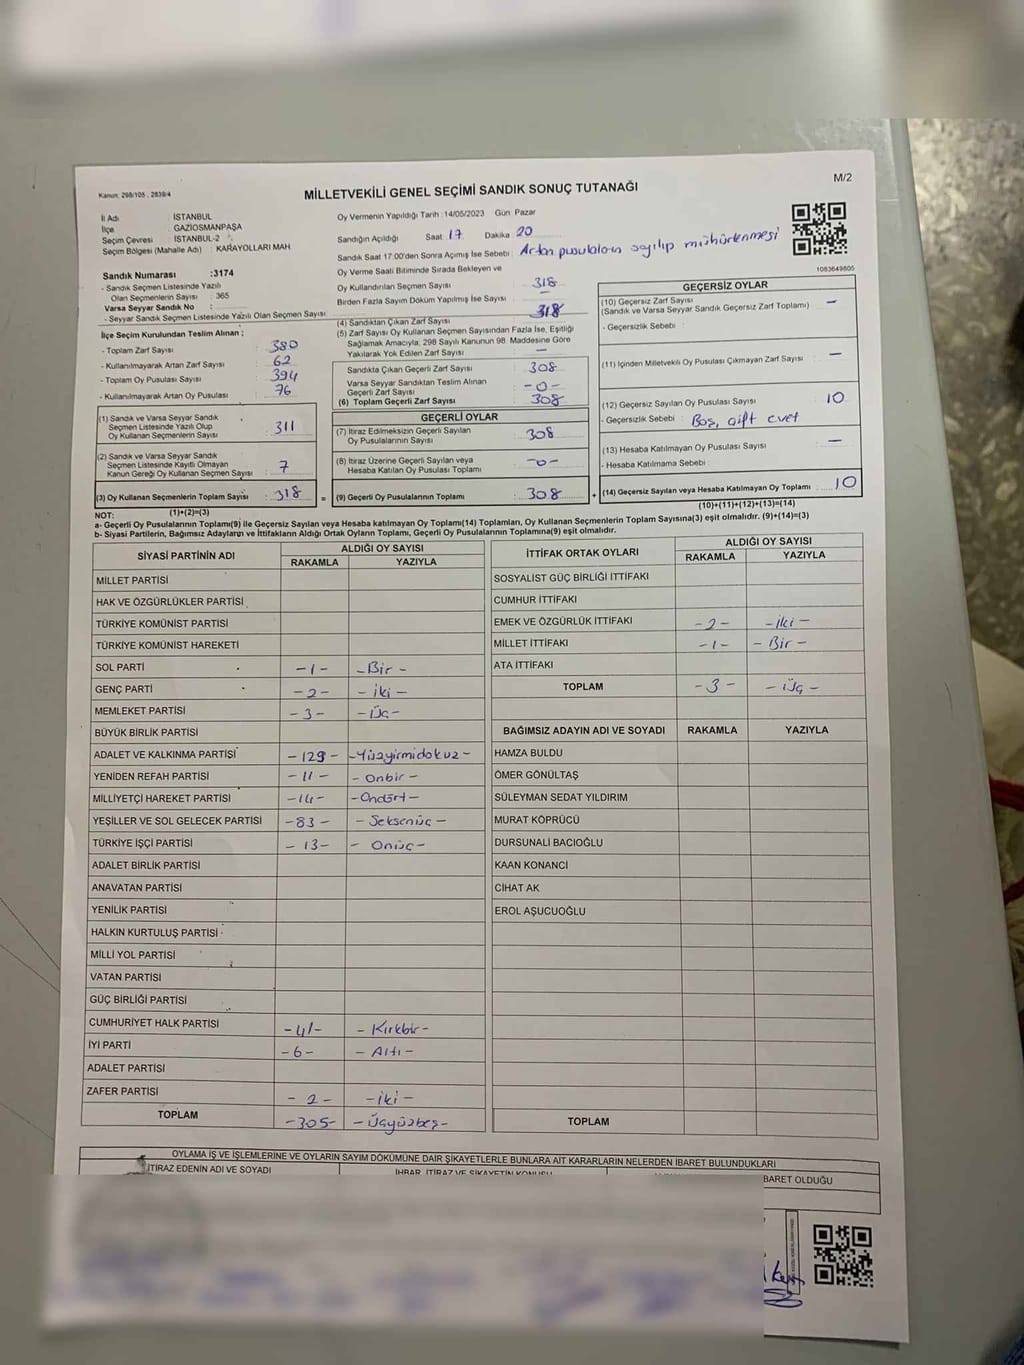 M/2
Kanun: 298/105 , 2839/4
MİLLETVEKİLİ GENEL SEÇİMİ SANDIK SONUÇ TUTANAĞI
İl Adı : İSTANBUL
İlçe : GAZİOSMANPAŞA
Seçim Çevresi : İSTANBUL-2
Seçim Bölgesi (Mahalle Adı) : KARAYOLLARI MAH
Sandık Numarası :3174
- Sandık Seçmen Listesinde Yazılı
Olan Seçmenlerin Sayısı : 365
Varsa Seyyar Sandık No :
- Seyyar Sandık Seçmen Listesinde Yazılı Olan Seçmen Sayısı :
Oy Vermenin Yapıldığı Tarih :14/05/2023 Gün: Pazar
Sandığın Açıldığı Saat 17 Dakika 20
Sandık Saat 17.00'den Sonra Açılmış İse Sebebi : Artan pusulaların sayılıp mühürlenmesi
Oy Verme Saati Bitiminde Sırada Bekleyen ve
Oy Kullandırılan Seçmen Sayısı : 318
Birden Fazla Sayım Döküm Yapılmış İse Sayısı : —
1083649805
İlçe Seçim Kurulundan Teslim Alınan ;
- Toplam Zarf Sayısı : 380
- Kullanılmayarak Artan Zarf Sayısı : 62
- Toplam Oy Pusulası Sayısı : 394
- Kullanılmayarak Artan Oy Pusulası : 76
(1) Sandık ve Varsa Seyyar Sandık
Seçmen Listesinde Yazılı Olup
Oy Kullanan Seçmenlerin Sayısı : 311
(2) Sandık ve Varsa Seyyar Sandık
Seçmen Listesinde Kayıtlı Olmayan
Kanun Gereği Oy Kullanan Seçmen Sayısı : 7
(3) Oy Kullanan Seçmenlerin Toplam Sayısı : 318 =
(4) Sandıktan Çıkan Zarf Sayısı : 318
(5) Zarf Sayısı Oy Kullanan Seçmen Sayısından Fazla İse, Eşitliği
Sağlamak Amacıyla, 298 Sayılı Kanunun 98. Maddesine Göre
Yakılarak Yok Edilen Zarf Sayısı : —
Sandıkta Çıkan Geçerli Zarf Sayısı : 308
Varsa Seyyar Sandıktan Teslim Alınan
Geçerli Zarf Sayısı : -0-
(6) Toplam Geçerli Zarf Sayısı : 308
GEÇERLİ OYLAR
(7) İtiraz Edilmeksizin Geçerli Sayılan
Oy Pusulalarının Sayısı : 308
(8) İtiraz Üzerine Geçerli Sayılan veya
Hesaba Katılan Oy Pusulası Toplamı : -0-
(9) Geçerli Oy Pusulalarının Toplamı : 308 +
GEÇERSİZ OYLAR
(10) Geçersiz Zarf Sayısı
(Sandık ve Varsa Seyyar Sandık Geçersiz Zarf Toplamı) : —
- Geçersizlik Sebebi :
(11) İçinden Milletvekili Oy Pusulası Çıkmayan Zarf Sayısı : —
(12) Geçersiz Sayılan Oy Pusulası Sayısı : 10
- Geçersizlik Sebebi : Boş, çift evet
(13) Hesaba Katılmayan Oy Pusulası Sayısı : —
- Hesaba Katılmama Sebebi :
(14) Geçersiz Sayılan veya Hesaba Katılmayan Oy Toplamı : 10
NOT: (1)+(2)=(3)
(10)+(11)+(12)+(13)=(14)
a- Geçerli Oy Pusulalarının Toplamı(9) ile Geçersiz Sayılan veya Hesaba katılmayan Oy Toplamı(14) Toplamları, Oy Kullanan Seçmenlerin Toplam Sayısına(3) eşit olmalıdır. (9)+(14)=(3)
b- Siyasi Partilerin, Bağımsız Adayların ve İttifakların Aldığı Ortak Oyların Toplamı, Geçerli Oy Pusulalarının Toplamına(9) eşit olmalıdır.
SİYASİ PARTİNİN ADI ALDIĞI OY SAYISI
RAKAMLA YAZIYLA
MİLLET PARTİSİ
HAK VE ÖZGÜRLÜKLER PARTİSİ
TÜRKİYE KOMÜNİST PARTİSİ
TÜRKİYE KOMÜNİST HAREKETİ
SOL PARTİ -1- -Bir-
GENÇ PARTİ -2- -iki-
MEMLEKET PARTİSİ -3- -Üç-
BÜYÜK BİRLİK PARTİSİ
ADALET VE KALKINMA PARTİSİ -129- -Yüzyirmidokuz-
YENİDEN REFAH PARTİSİ -11- -Onbir-
MİLLİYETÇİ HAREKET PARTİSİ -14- -Ondört-
YEŞİLLER VE SOL GELECEK PARTİSİ -83- -Seksenüç-
TÜRKİYE İŞÇİ PARTİSİ -13- -Onüç-
ADALET BİRLİK PARTİSİ
ANAVATAN PARTİSİ
YENİLİK PARTİSİ
HALKIN KURTULUŞ PARTİSİ
MİLLİ YOL PARTİSİ
VATAN PARTİSİ
GÜÇ BİRLİĞİ PARTİSİ
CUMHURİYET HALK PARTİSİ -41- -Kırkbir-
İYİ PARTİ -6- -Altı-
ADALET PARTİSİ
ZAFER PARTİSİ -2- -iki-
TOPLAM -305- -Üçyüzbeş-
İTTİFAK ORTAK OYLARI ALDIĞI OY SAYISI
RAKAMLA YAZIYLA
SOSYALİST GÜÇ BİRLİĞİ İTTİFAKI
CUMHUR İTTİFAKI
EMEK VE ÖZGÜRLÜK İTTİFAKI -2- -İki-
MİLLET İTTİFAKI -1- -Bir-
ATA İTTİFAKI
TOPLAM -3- -Üç-
BAĞIMSIZ ADAYIN ADI VE SOYADI RAKAMLA YAZIYLA
HAMZA BULDU
ÖMER GÖNÜLTAŞ
SÜLEYMAN SEDAT YILDIRIM
MURAT KÖPRÜCÜ
DURSUNALİ BACIOĞLU
KAAN KONANCİ
CİHAT AK
EROL AŞUCUOĞLU
TOPLAM
OYLAMA İŞ VE İŞLEMLERİNE VE OYLARIN SAYIM DÖKÜMÜNE DAİR ŞİKAYETLERLE BUNLARA AİT KARARLARIN NELERDEN İBARET BULUNDUKLARI
İTİRAZ EDENİN ADI VE SOYADI İHBAR, İTİRAZ VE ŞİKAYETİN KONUSU BARET OLDUĞU